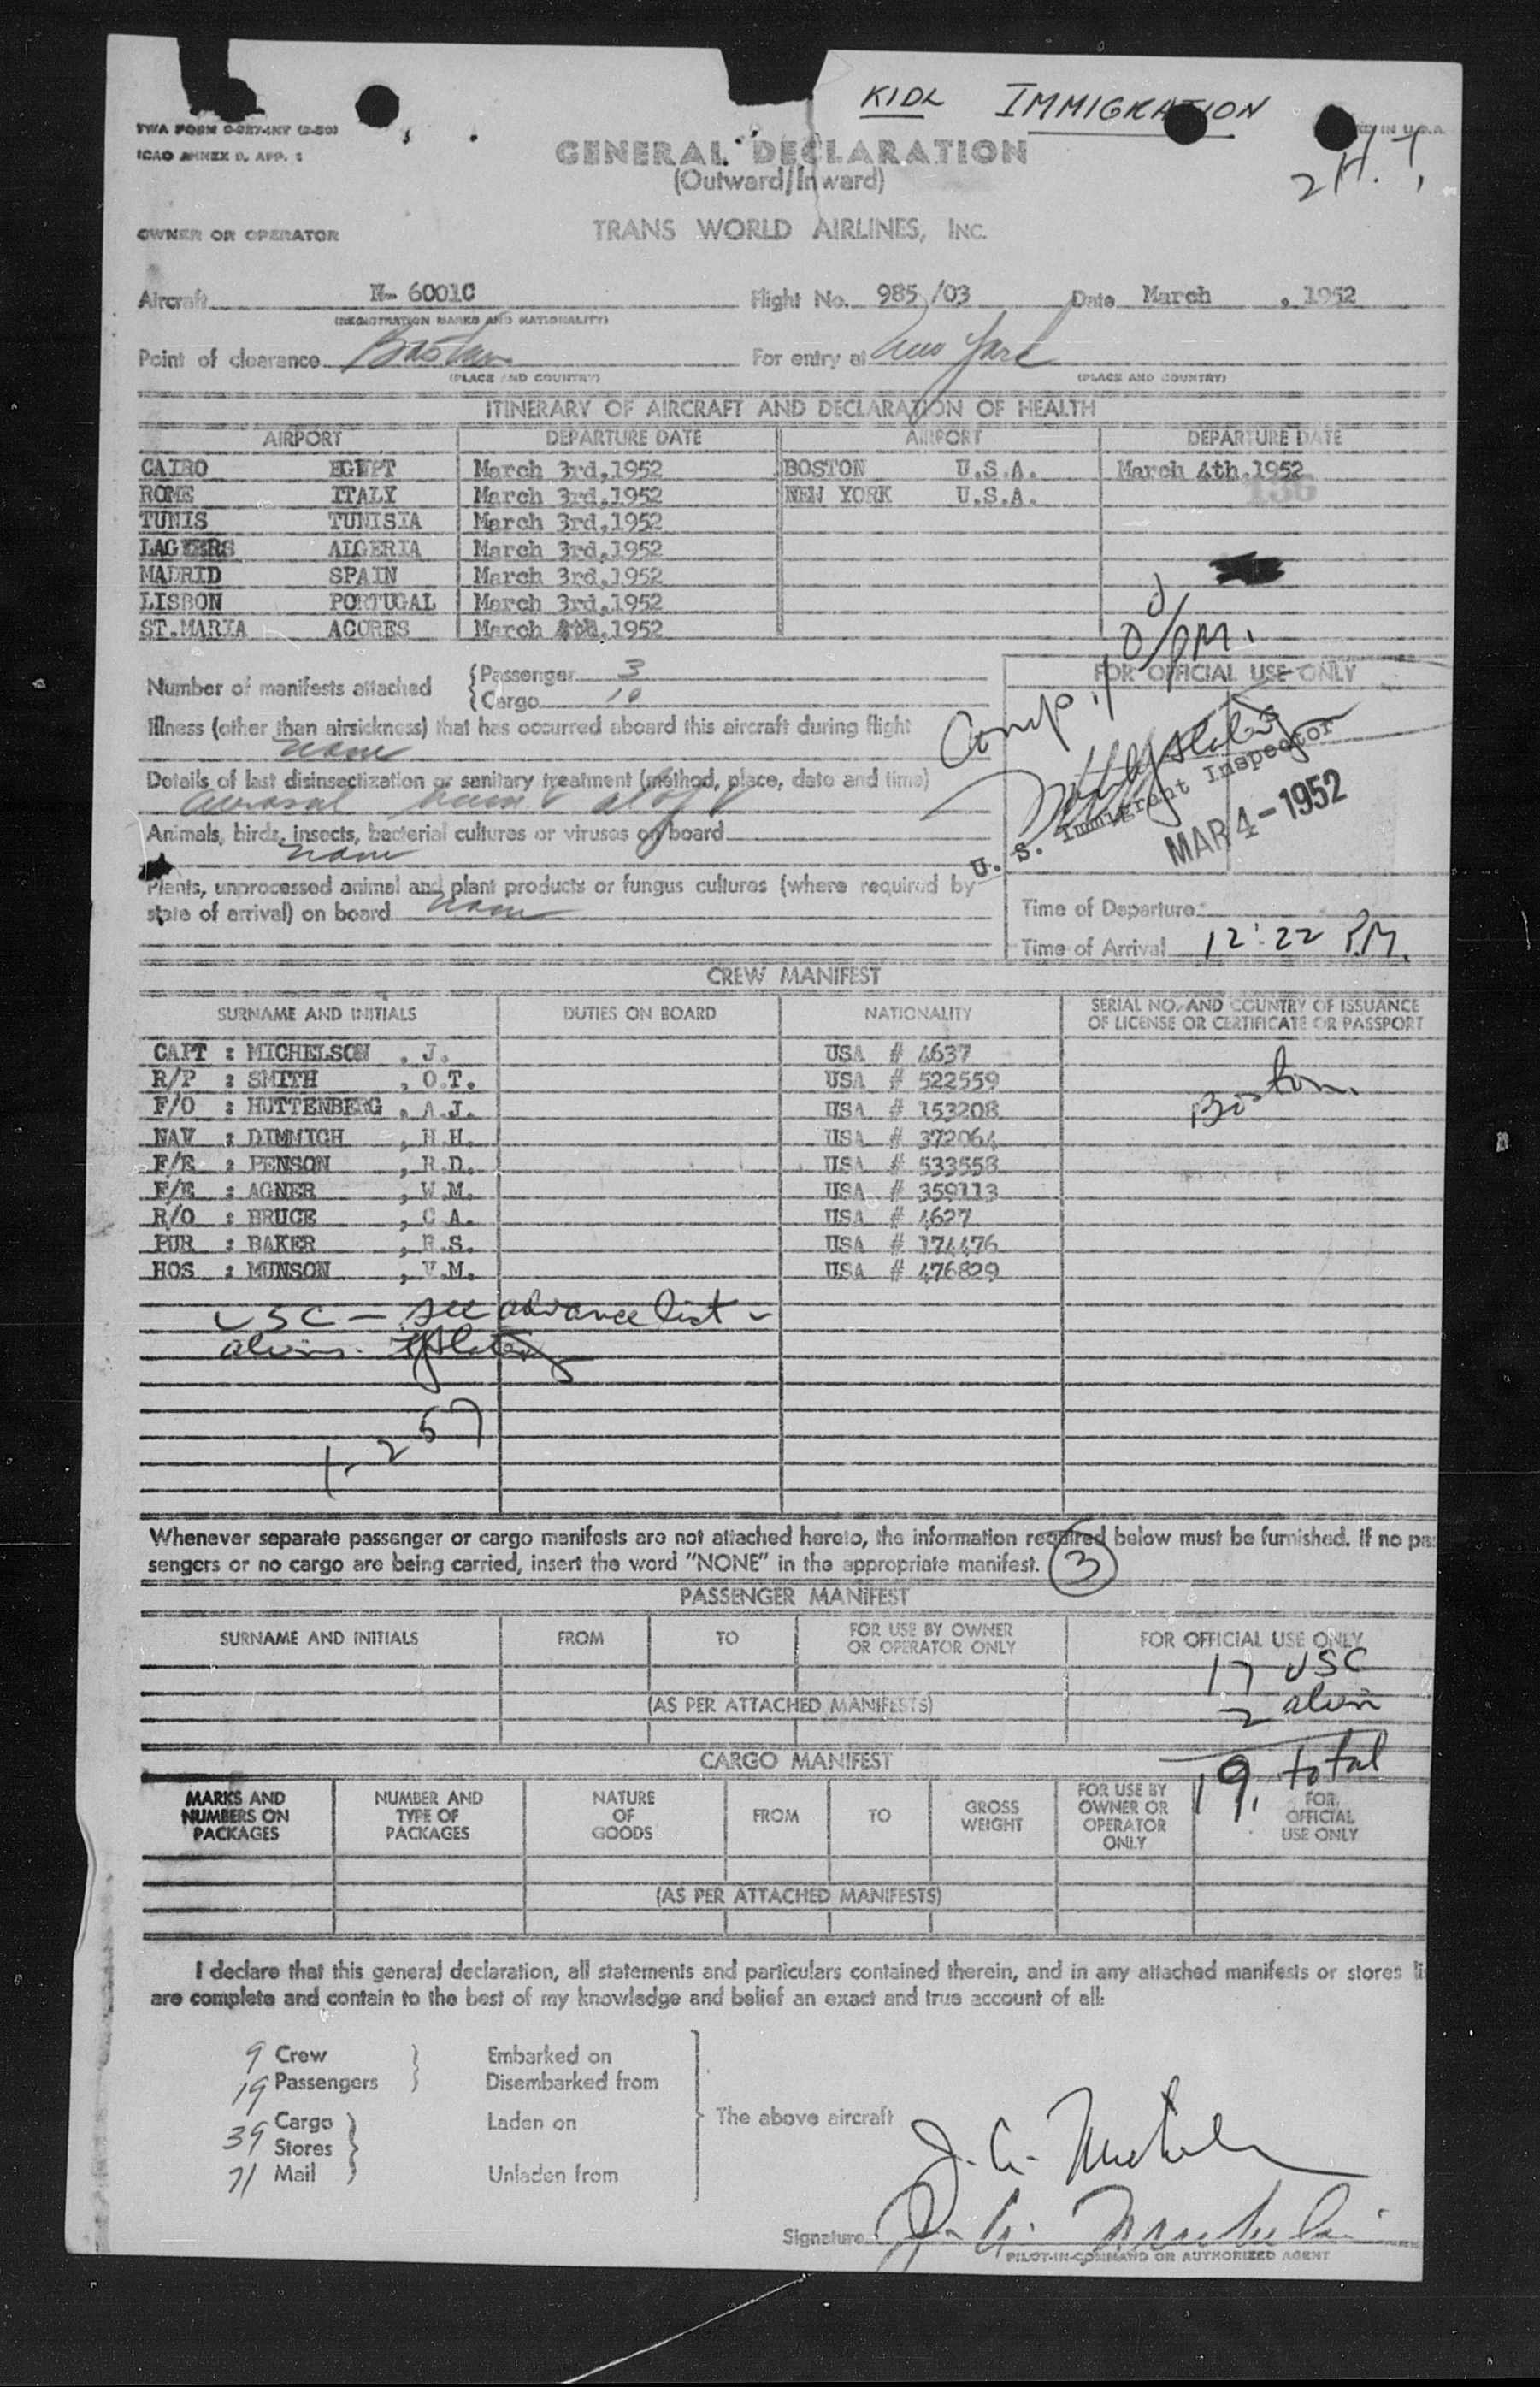 KIDL IMMIGRATION
TWA FORM
ICAO ANNEX 9, APP. 1
IN U.S.A.
GENERAL DECLARATION
(Outward/Inward)
OWNER OR OPERATOR TRANS WORLD AIRLINES, INC.
Aircraft N- 6001C Flight No. 985/03 Date March , 1952
(REGISTRATION MARKS AND NATIONALITY)
Point of clearance Boston For entry at New York
(PLACE AND COUNTRY) (PLACE AND COUNTRY)
ITINERARY OF AIRCRAFT AND DECLARATION OF HEALTH
AIRPORT DEPARTURE DATE AIRPORT DEPARTURE DATE
CAIRO EGYPT March 3rd,1952 BOSTON U.S.A. March 4th,1952
ROME ITALY March 3rd,1952 NEW YORK U.S.A. 136
TUNIS TUNISIA March 3rd,1952
ALGERIA March 3rd,1952
MADRID SPAIN March 3rd,1952
LISBON PORTUGAL March 3rd,1952
ST.MARIA ACORES March 4th,1952
Number of manifests attached {Passenger 3
{Cargo 10
FOR OFFICIAL USE ONLY
Illness (other than airsickness) that has occurred aboard this aircraft during flight
none
Details of last disinsectization or sanitary treatment (method, place, date and time)
aerosal
U. S. Immigrant Inspector
MAR 4-1952
Animals, birds, insects, bacterial cultures or viruses on board
none
Plants, unprocessed animal and plant products or fungus cultures (where required by
state of arrival) on board none
Time of Departure
Time of Arrival 12:22 P.M.
CREW MANIFEST
SURNAME AND INITIALS DUTIES ON BOARD NATIONALITY SERIAL NO. AND COUNTRY OF ISSUANCE
OF LICENSE OR CERTIFICATE OR PASSPORT
CAPT : MICHELSON , J. USA # 4637
R/P : SMITH , O.T. USA # 522559
F/O : HUTTENBERG , A.J. USA # 153208
Boston
NAV : DIMMICH , H.H. USA # 372064
F/E : PENSON , R.D. USA # 533558
F/E : AGNER , W.M. USA # 359113
R/O : BRUCE , C A. USA # 4627
PUR : BAKER , R.S. USA # 174476
HOS : MUNSON , V.M. USA # 476829
USC — see advance list -
1-257
Whenever separate passenger or cargo manifests are not attached hereto, the information required below must be furnished. If no pas
sengers or no cargo are being carried, insert the word "NONE" in the appropriate manifest. 3
PASSENGER MANIFEST
SURNAME AND INITIALS FROM TO FOR USE BY OWNER
OR OPERATOR ONLY FOR OFFICIAL USE ONLY
17 USC
(AS PER ATTACHED MANIFESTS)
2 alien
19. total
CARGO MANIFEST
MARKS AND
NUMBERS ON
PACKAGES NUMBER AND
TYPE OF
PACKAGES NATURE
OF
GOODS FROM TO GROSS
WEIGHT FOR USE BY
OWNER OR
OPERATOR
ONLY FOR
OFFICIAL
USE ONLY
(AS PER ATTACHED MANIFESTS)
I declare that this general declaration, all statements and particulars contained therein, and in any attached manifests or stores li
are complete and contain to the best of my knowledge and belief an exact and true account of all:
9 Crew Embarked on
19 Passengers Disembarked from
39 Cargo Laden on The above aircraft
Stores
71 Mail Unladen from
Signature
PILOT-IN-COMMAND OR AUTHORIZED AGENT